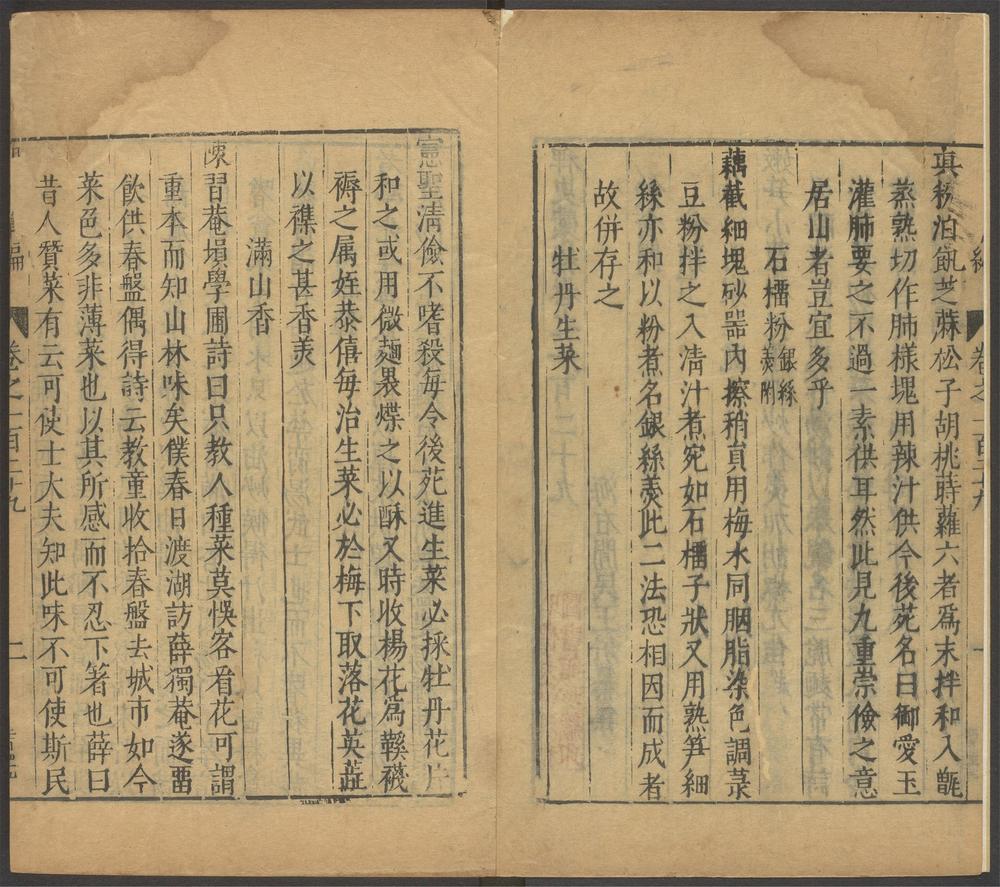 真粉泊飢芝蔴松子胡桃蒔蘿六者爲末拌和入甑
蒸熟切作肺樣塊用辣汁供今後苑名曰御愛玉
灌肺要之不過一素供耳然此見九重崇儉之意
居山者豈宜多乎
石榴粉 銀絲羮附
藕截細塊砂噐內擦稍員用梅水同胭脂染色調菉
豆粉拌之入清汁煮宛如石榴子狀又用熟笋細
絲亦和以粉煮名銀絲羮此二法恐相因而成者
故併存之
牡丹生菜
憲聖清儉不嗜殺毎令後苑進生菜必採牡丹花片
和之或用微麵褁煠之以酥又時收楊花爲鞵襪
褥之属姪恭僖毎治生菜必於梅下取落花英蕋
以襍之甚香羙
滿山香
陳習菴塤學圃詩曰只教人種菜莫悞客看花可謂
重本而知山林味矣僕春日渡湖訪薛獨菴遂畱
飲供春盤偶得詩云教童收拾春盤去城市如今
菜色多非薄菜也以其所感而不忍下箸也薛曰
昔人贊菜有云可使士大夫知此味不可使斯民
編
卷之一百二十九
二